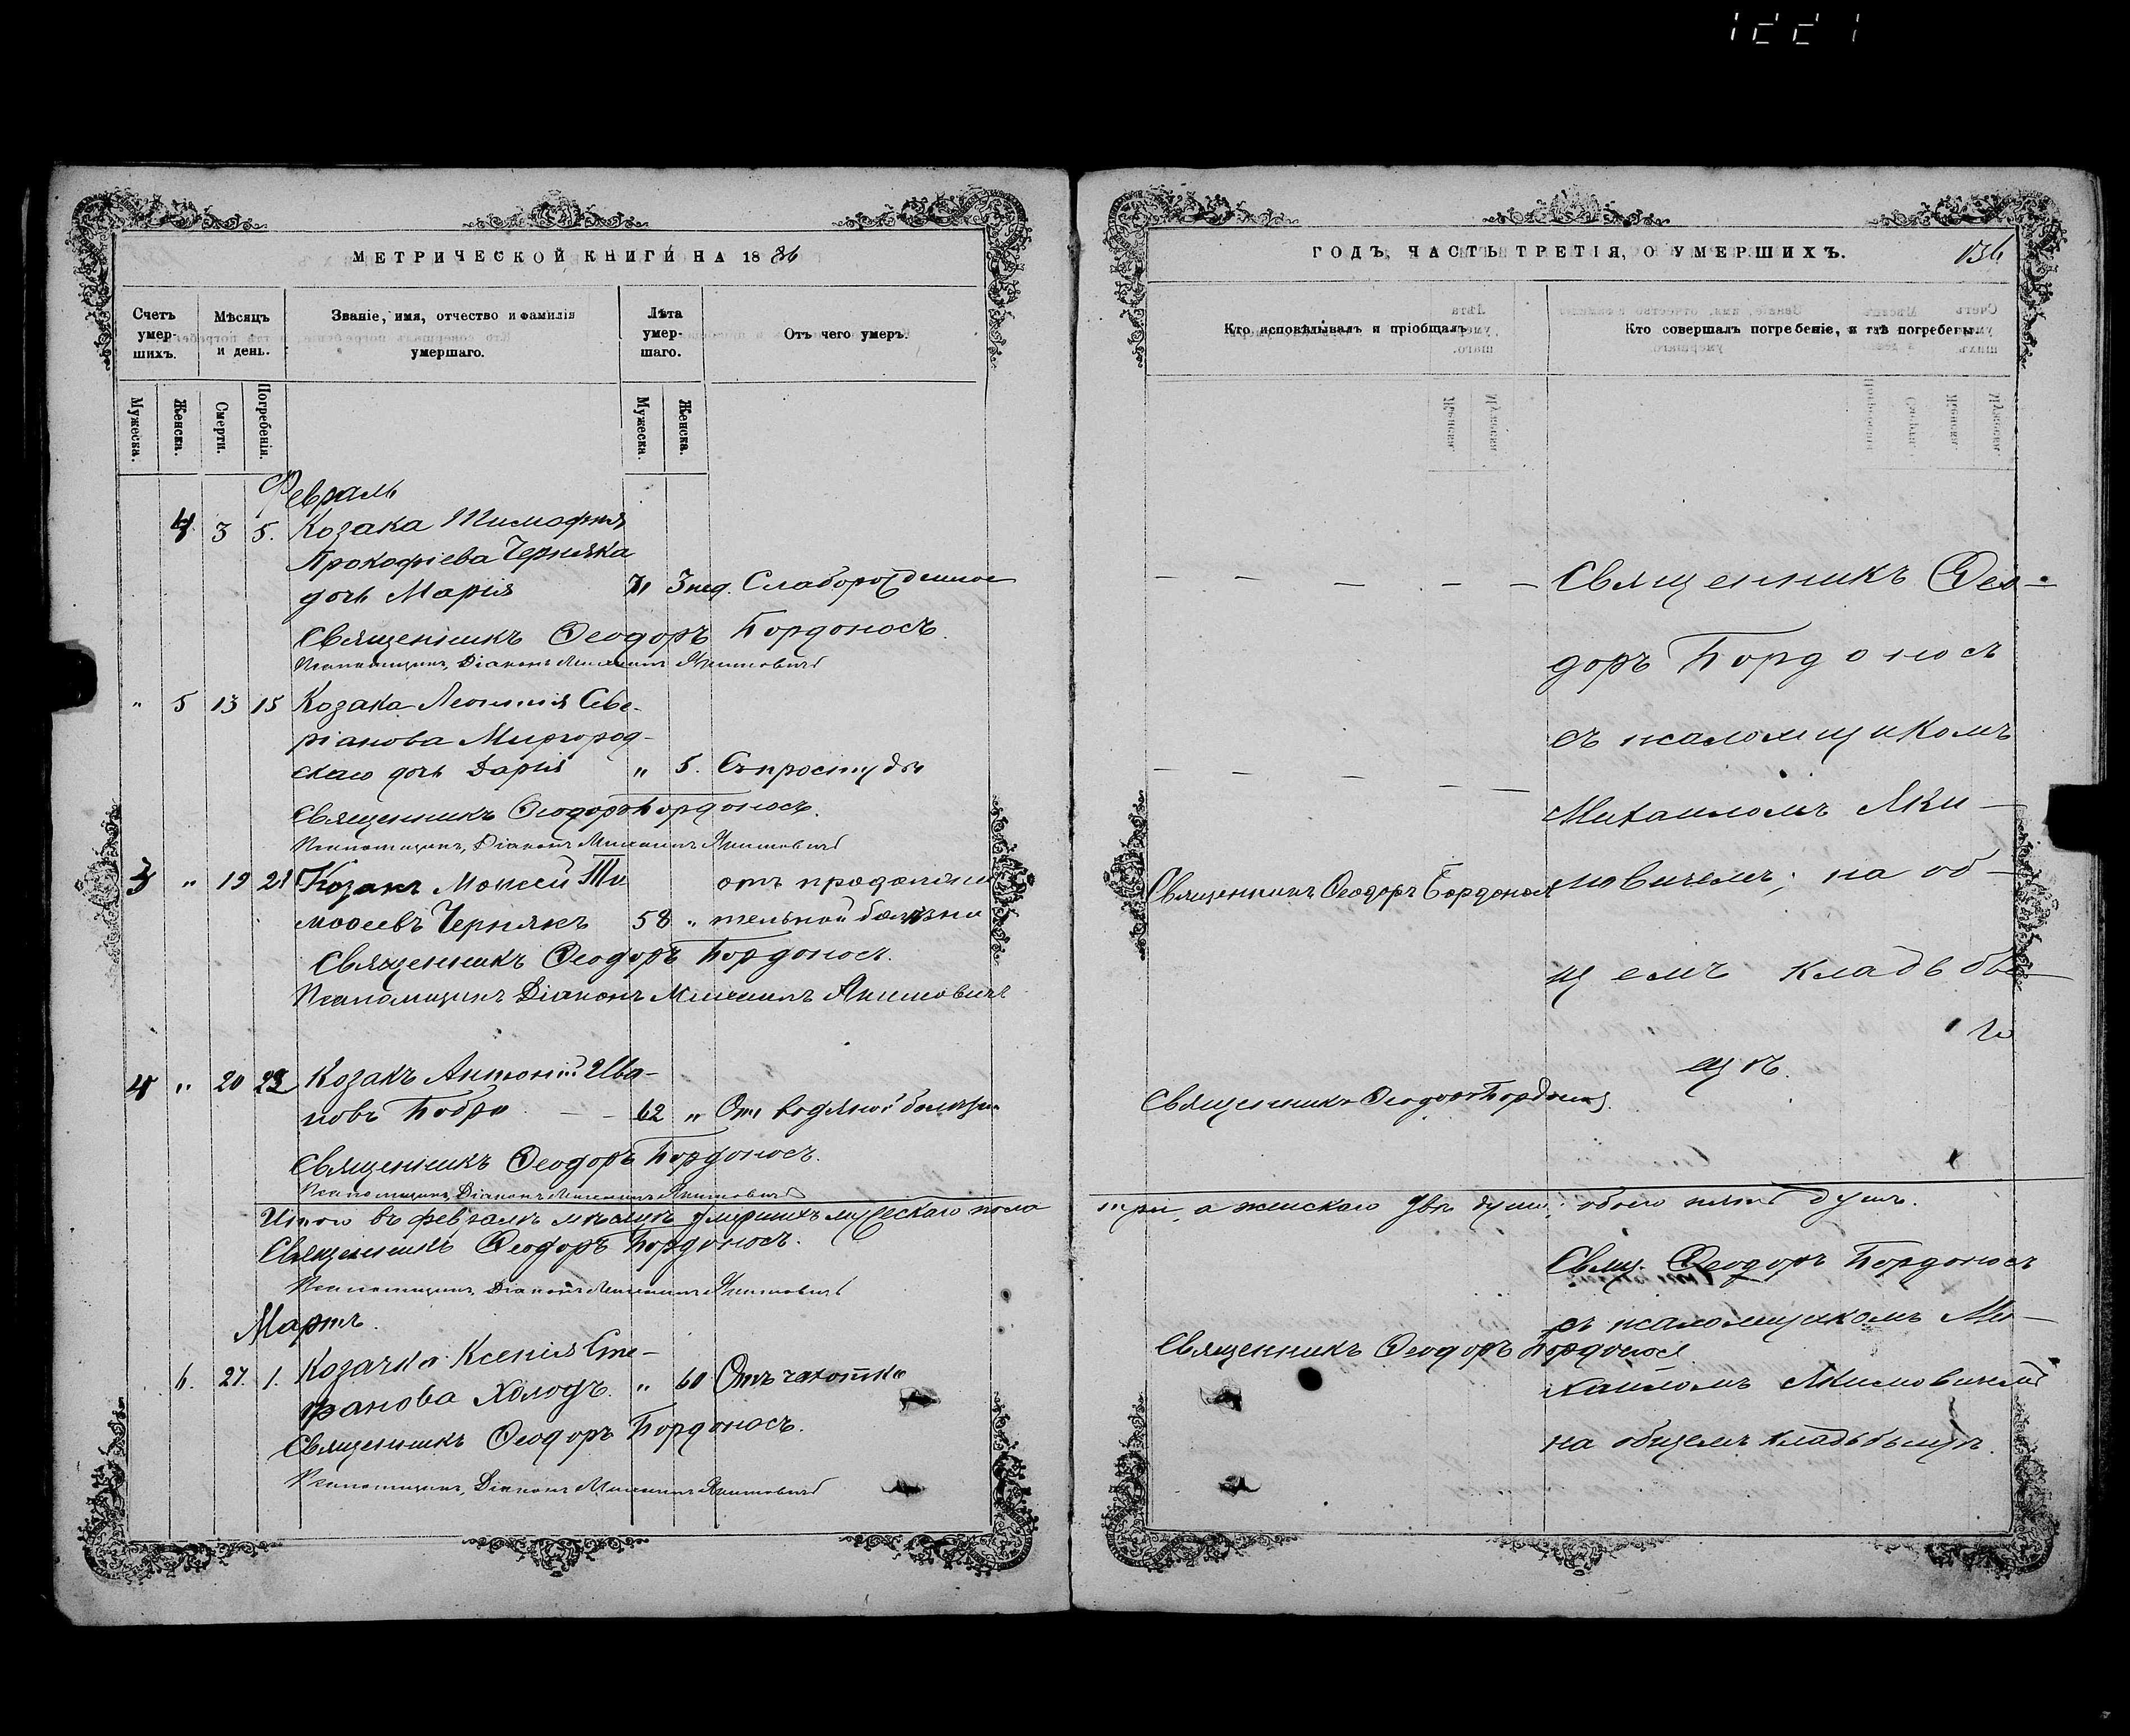 1221
МЕТРИЧЕСКОЙ КНИГИ НА 1886
Счетъ умер-шихъ.
Мѣсяцъ и день.
Званіе, имя, отчество и фамилія умершаго.
Лѣта умер-шаго.
Отъ чего умеръ.
Мужеска.
Женска.
Смерти.
Погребенія.
Мужеска.
Женска.
Февраль
4 3 5. Козака Тимофея
Прокофіева Черняка
дочь Марія " 3 нед. Слаборожденное
Священникъ Ѳеодоръ Бордоносъ.
Псаломщикъ, Діаконъ Михаилъ Якимовичъ
" 5 13 15 Козака Леонтія Севе-
ріанова Миргород-
скаго дочь Дарія " 5. Съ простуды
Священникъ Ѳеодоръ Бордоносъ.
Псаломщикъ, Діаконъ Михаилъ Якимовичъ
3 " 19 21 Козакъ Моисей Ти
моѳеевъ Чернякъ 58 " отъ продолжи
тельной болѣзни
Священникъ Ѳеодоръ Бордоносъ.
Псаломщикъ Діаконъ Михаилъ Якимовичъ
4 " 20 23 Козакъ Антоній Ива-
новъ Бобро 62 " Отъ водяной болѣзни
Священникъ Ѳеодоръ Бордоносъ.
Псаломщикъ, Діаконъ Михаилъ Якимовичъ
Итого въ февралѣ мѣсяцѣ умершихъ мужескаго пола
Священникъ Ѳеодоръ Бордоносъ.
Псаломщикъ, Діаконъ Михаилъ Якимовичъ
Мартъ.
6. 27. 1. Козачка Ксенія Сте-
фанова Холодъ. " 60 Отъ чахотки
Священникъ Ѳеодоръ Бордоносъ.
Псаломщикъ, Діаконъ Михаилъ Якимовичъ
ГОДЪ, ЧАСТЬ ТРЕТІЯ, О УМЕРШИХЪ.
136
Кто исповѣдывалъ и пріобщалъ.
Кто совершалъ погребеніе, и гдѣ погребены.
Священникъ Ѳео-
доръ Бордоносъ
съ псаломщикомъ
Михаиломъ Яки-
Священникъ Ѳеодоръ Бордоносъ
мовичемъ; на об-
щемъ кладбы-
щѣ.
Священникъ Ѳеодоръ Бордоносъ.
три, а женскаго двѣ души; обоего пять душъ.
Свящ. Ѳеодоръ Бордоносъ
съ псаломщикомъ Ми-
Священникъ Ѳеодоръ Бордоносъ
хаиломъ Якимовичемъ
на общемъ кладьбыщѣ.